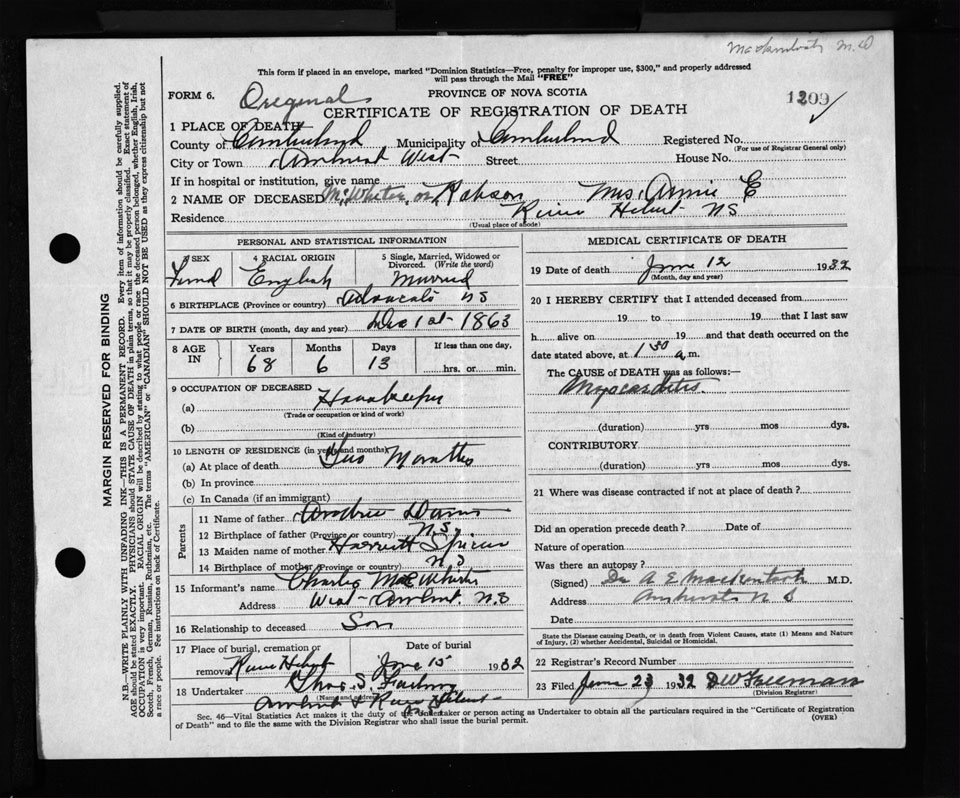 M.D
This form if placed in an envelope, marked "Dominion Statistics—Free, penalty for improper use, $300," and properly addressed
will pass through the Mail "FREE"
FORM 6. Original PROVINCE OF NOVA SCOTIA 1209
CERTIFICATE OF REGISTRATION OF DEATH
1 PLACE OF DEATH
County of Cumberland Municipality of Cumberland Registered No.
(For use of Registrar General only)
City or Town Amherst West Street House No.
If in hospital or institution, give name
2 NAME OF DECEASED or Robson Mrs. Annie E
Residence River Hebert NS
(Usual place of abode)
PERSONAL AND STATISTICAL INFORMATION
3 SEX 4 RACIAL ORIGIN 5 Single, Married, Widowed or
Divorced. (Write the word)
English Married
6 BIRTHPLACE (Province or country) Advocate NS
7 DATE OF BIRTH (month, day and year) Dec 1st 1863
8 AGE IN Years Months Days If less than one day,
68 6 13 hrs. or min.
9 OCCUPATION OF DECEASED
(a) Housekeeper
(Trade or occupation or kind of work)
(b)
(Kind of industry)
10 LENGTH OF RESIDENCE (in years and months)
(a) At place of death Two Months
(b) In province
(c) In Canada (if an immigrant)
Parents
11 Name of father
12 Birthplace of father (Province or country) N.S.
13 Maiden name of mother Harriett Spicer
14 Birthplace of mother (Province or country) N S
15 Informant's name Charles
Address West Amherst. N.S
16 Relationship to deceased Son
17 Place of burial, cremation or Date of burial
removal River Hebert June 15 1932
18 Undertaker
(Name and address)
Amherst & River Hebert
MEDICAL CERTIFICATE OF DEATH
19 Date of death June 12 1932
(Month, day and year)
20 I HEREBY CERTIFY that I attended deceased from
19 to 19 that I last saw
h alive on 19 and that death occurred on the
date stated above, at 1 30 a.m.
The CAUSE of DEATH was as follows:—
Myocarditis
(duration) yrs mos dys.
CONTRIBUTORY
(duration) yrs mos dys.
21 Where was disease contracted if not at place of death?
Did an operation precede death? Date of
Nature of operation
Was there an autopsy?
(Signed) Dr A E Mackintosh M.D.
Address Amherst N S
Date
State the Disease causing Death, or in death from Violent Causes, state (1) Means and Nature
of Injury, (2) whether Accidental, Suicidal or Homicidal.
22 Registrar's Record Number
23 Filed June 23 1932 Freeman
(Division Registrar)
Sec. 46—Vital Statistics Act makes it the duty of the Undertaker or person acting as Undertaker to obtain all the particulars required in the "Certificate of Registration
of Death" and to file the same with the Division Registrar who shall issue the burial permit. (OVER)
MARGIN RESERVED FOR BINDING
N.B.—WRITE PLAINLY WITH UNFADING INK—THIS IS A PERMANENT RECORD. Every item of information should be carefully supplied.
AGE should be stated EXACTLY. PHYSICIANS should STATE CAUSE OF DEATH in plain terms, so that it may be properly classified. Exact statement of
OCCUPATION is very important. RACIAL ORIGIN will be described by stating to what people or race the deceased person belonged, whether English, Irish,
Scotch, French, German, Russian, Ruthenian, etc. The terms "AMERICAN" or "CANADIAN" SHOULD NOT BE USED as they express citizenship but not
a race or people. See instructions on back of Certificate.